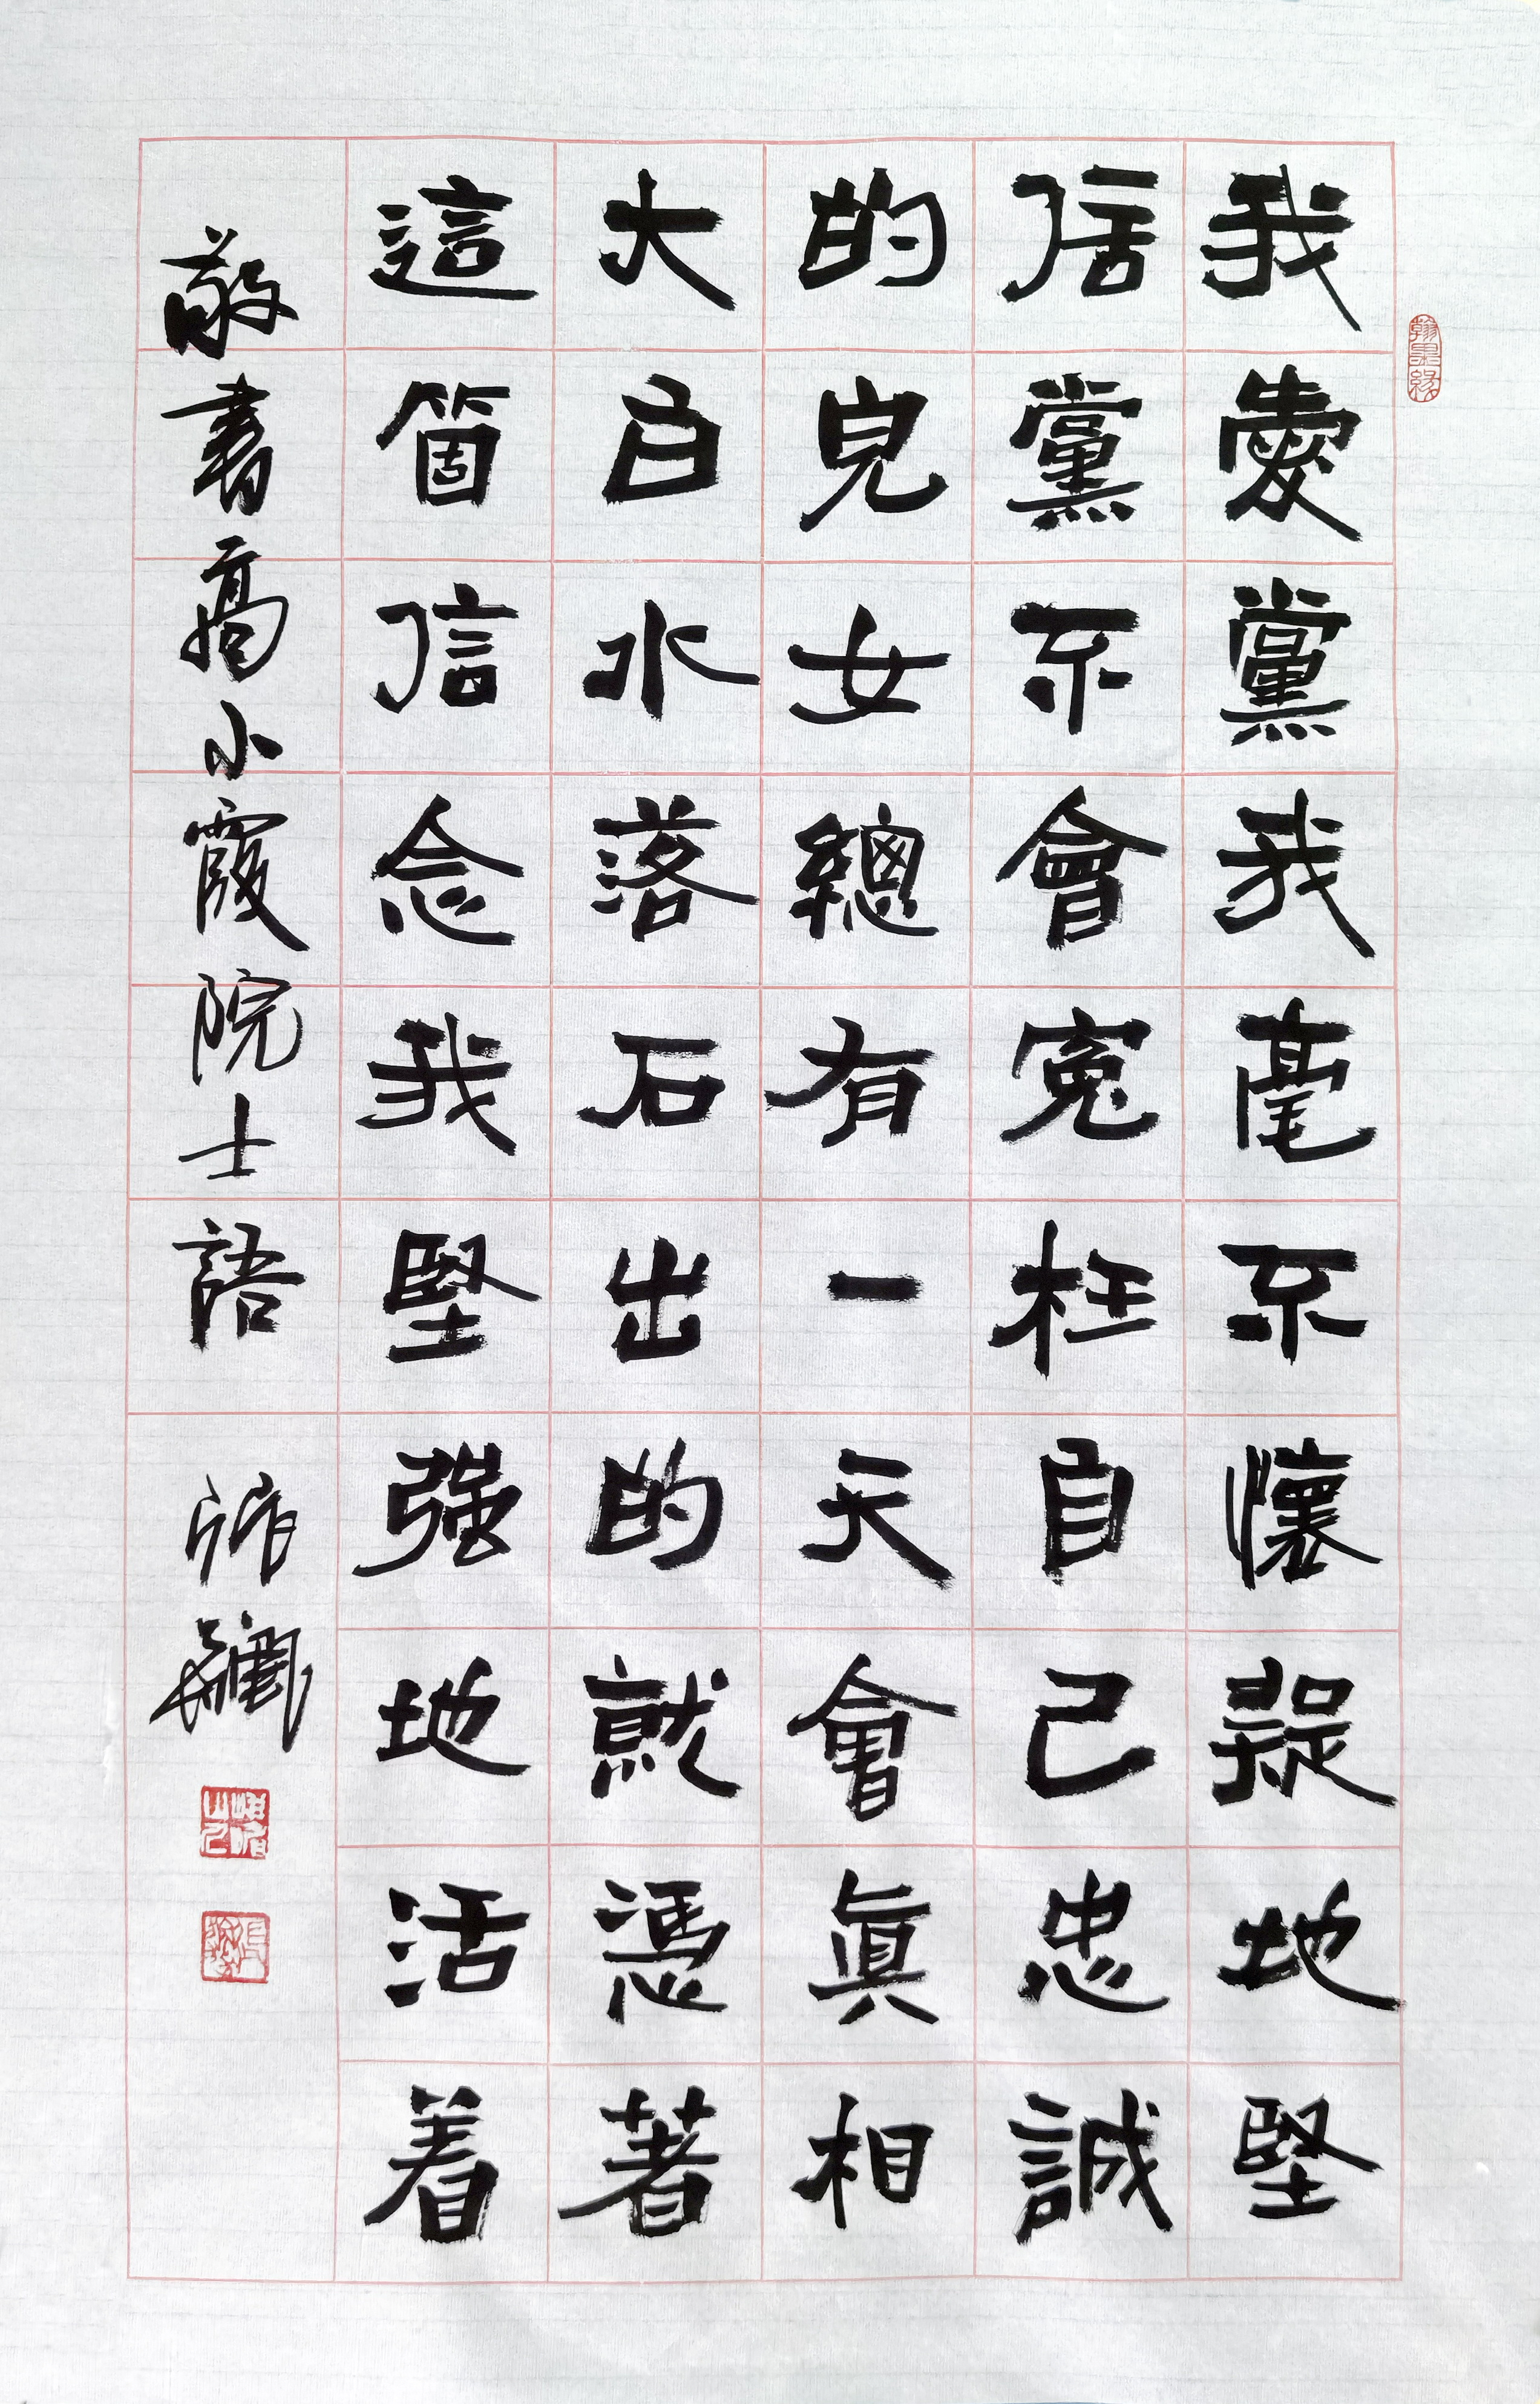 我愛黨我毫不懷疑地堅
信黨不會冤枉自己忠誠
的兒女總有一天會真相
大白水落石出的就憑著
這箇信念我堅强地活着
敬書高小霞院士語
翰墨緣